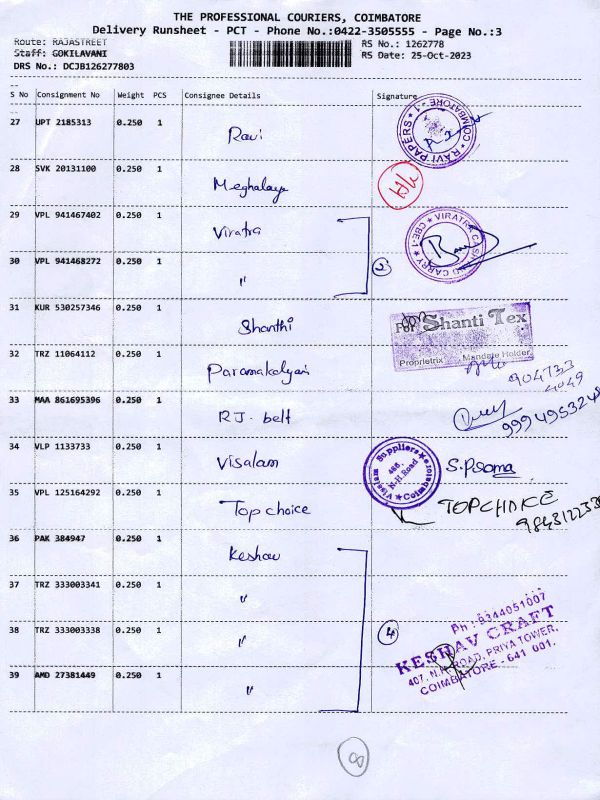 THE PROFESSIONAL COURIERS, COIMBATORE
Delivery Runsheet - PCT - Phone No.:0422-3505555 - Page No.:3
Route: RAJASTREET
RS No.: 1262778
Staff: GOKILAVANI
RS Date: 25-Oct-2023
DRS No.: DCJB126277803
S No Consignment No Weight PCS Consignee Details Signature
27 UPT 2185313 0.250 1 Ravi
COIMBATORE - 1. RAVI PAPERS
28 SVK 20131100 0.250 1 Meghalaya
29 VPL 941467402 0.250 1 Viratra
VIRATRA CASH AND CARRY CBE-1
30 VPL 941468272 0.250 1 " 2
31 KUR 530257346 0.250 1 Shanthi
For Shanti Tex
Proprietrix Mandate Holder
32 TRZ 11064112 0.250 1 Paramakalyani
904733
4049
33 MAA 861695396 0.250 1 RJ. belt
9994953248
34 VLP 1133733 0.250 1 Visalam
Visalam Suppliers 466, N.H.Road Coimbatore
S.Pooma
35 VPL 125164292 0.250 1 Top choice
TOPCHOICE
36 PAK 384947 0.250 1 Keshav
37 TRZ 333003341 0.250 1 "
38 TRZ 333003338 0.250 1 " 4
Ph : 9344051007
KESHAV CRAFT
407, N.H. ROAD, PRIYA TOWER,
COIMBATORE - 641 001.
39 AMD 27381449 0.250 1 "
8